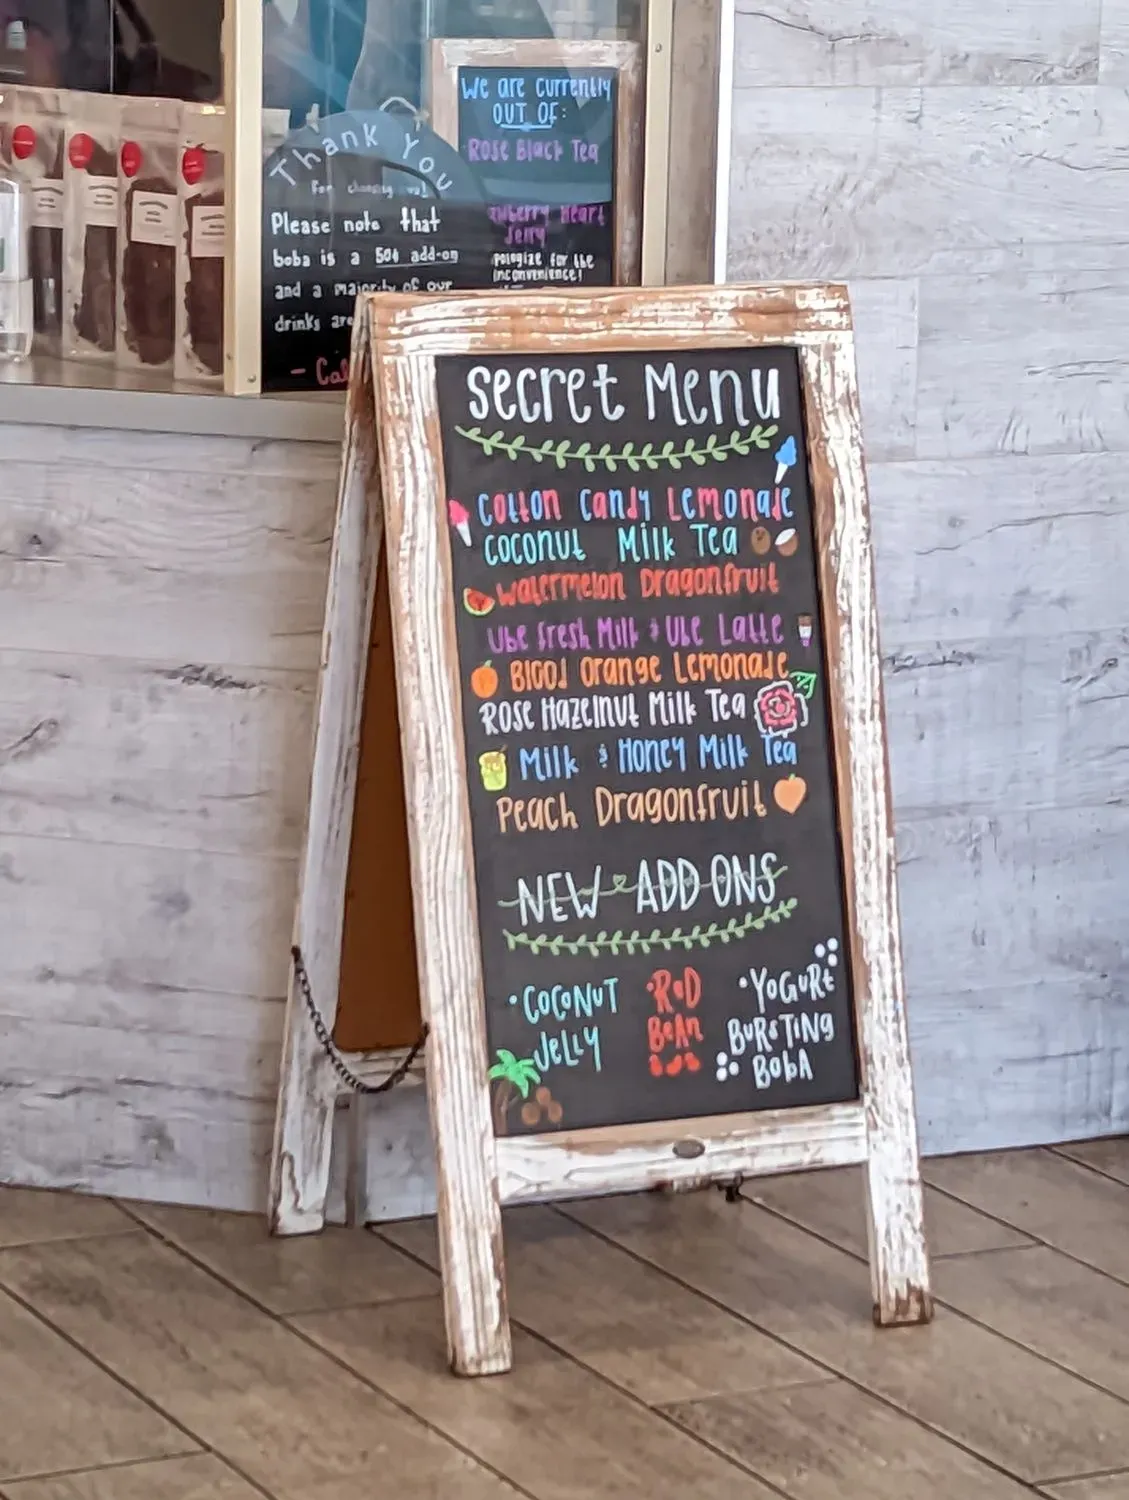 We are currently
OUT OF:
Rose Black Tea
Heart
Jelly
for the
inconvenience!
Thank You
For choosing us!
Please note that
boba is a 50¢ add-on
and a majority of our
drinks are
Secret Menu
Cotton Candy Lemonade
Coconut Milk Tea
Watermelon Dragonfruit
Ube Fresh Milk & Ube Latte
Blood Orange Lemonade
Rose Hazelnut Milk Tea
Milk & Honey Milk Tea
Peach Dragonfruit
NEW ADD ONS
• COCONUT
JELLY
• RED
BEAN
• YOGURt
BURSTiNG
BOBA